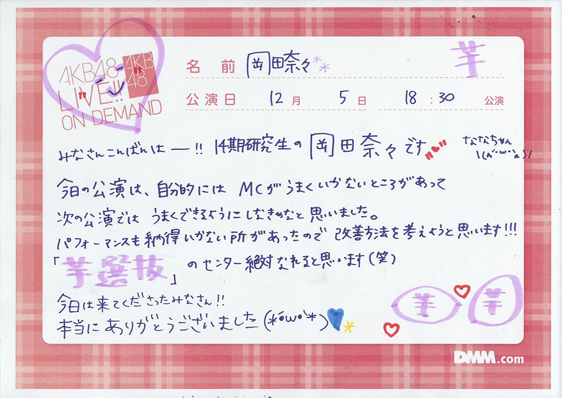 AKB48 AKB48
LIVE!!
ON DEMAND
名前 岡田奈々
芋
公演日 12月 5日 18:30 公演
みなさんこんばんはー!! 14期研究生の 岡田奈々です
ななちゃん
今日の公演は、自分的には MCがうまくいかないところがあって
次の公演では うまくできるようにしなきゃなと思いました。
パフォーマンスも納得いかない所があったので 改善方法を考えようと思います!!!
「芋選抜」のセンター絶対なれると思います(笑)
今日は来てくださったみなさん!!
本当にありがとうございました(*°ω°*)
芋 芋
DMM.com